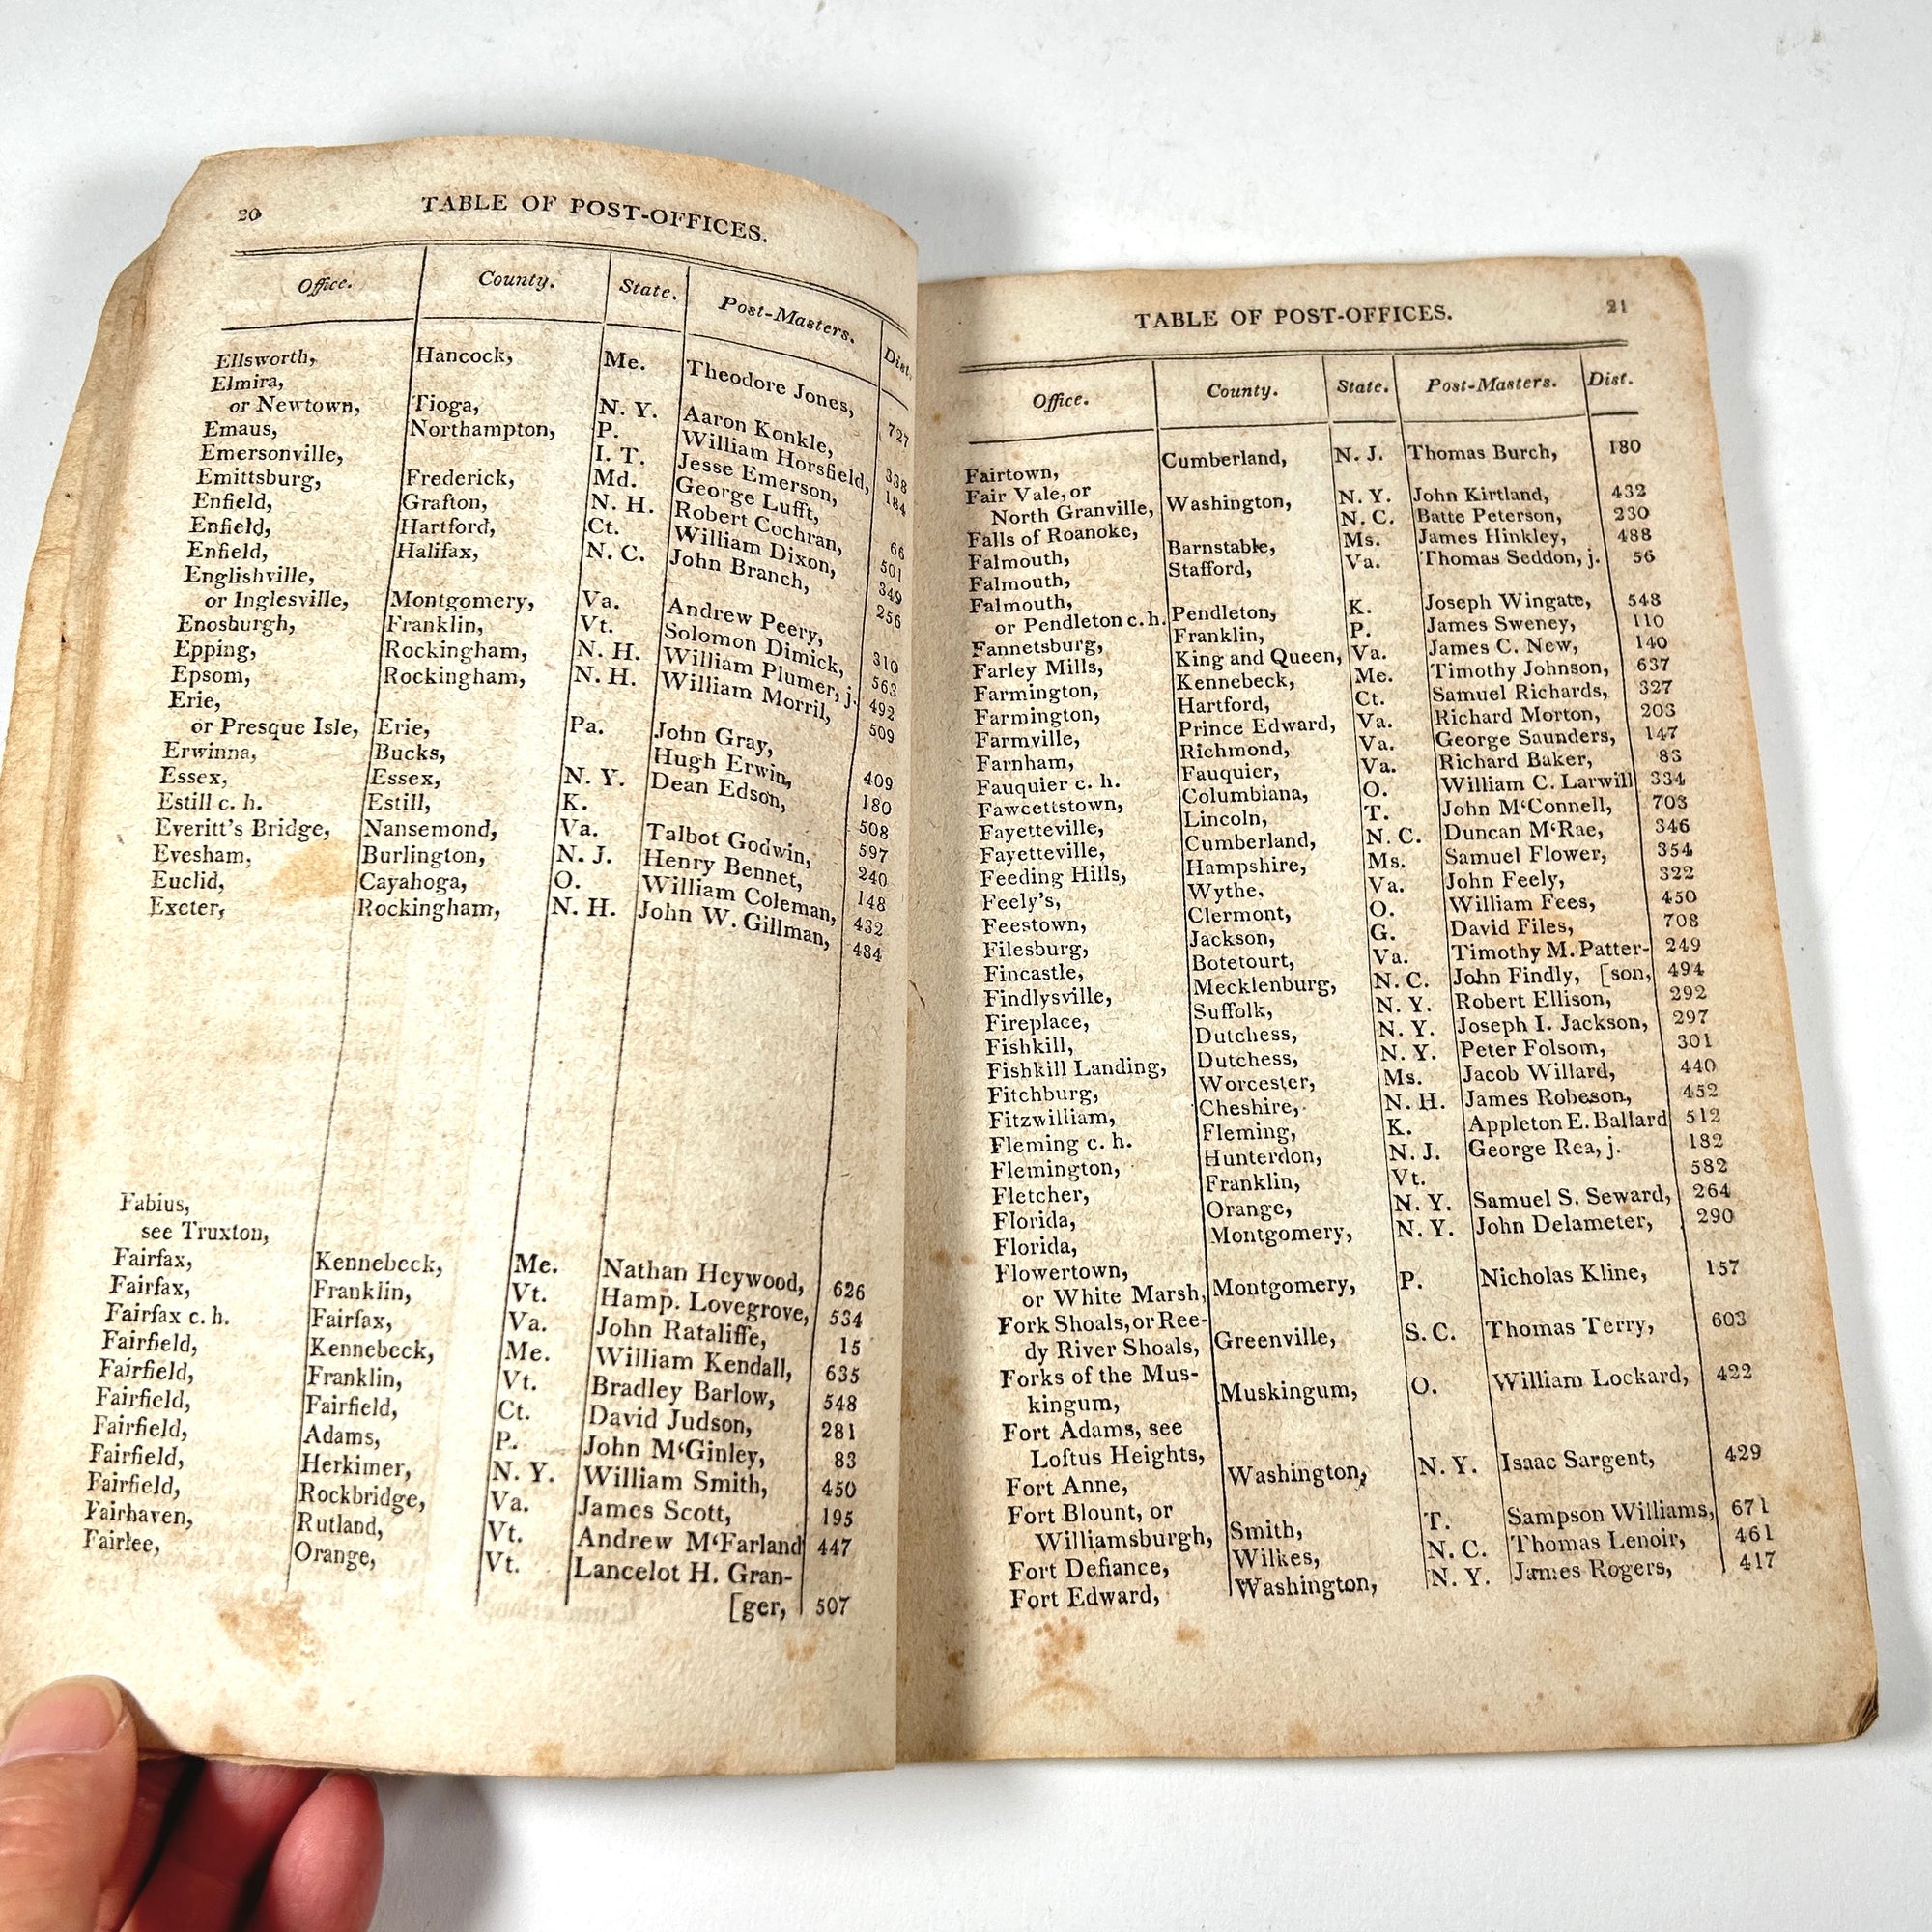 20
TABLE OF POST-OFFICES.
Office. County. State. Post-Masters. Dist.
Ellsworth, Hancock, Me. Theodore Jones, 727
Elmira,
or Newtown, Tioga, N. Y. Aaron Konkle, 338
Emaus, Northampton, P. William Horsfield, 184
Emersonville, I. T. Jesse Emerson,
Emittsburg, Frederick, Md. George Lufft, 66
Enfield, Grafton, N. H. Robert Cochran, 501
Enfield, Hartford, Ct. William Dixon, 349
Enfield, Halifax, N. C. John Branch, 256
Englishville,
or Inglesville, Montgomery, Va. Andrew Peery, 310
Enosburgh, Franklin, Vt. Solomon Dimick, 563
Epping, Rockingham, N. H. William Plumer, j. 492
Epsom, Rockingham, N. H. William Morril, 509
Erie,
or Presque Isle, Erie, Pa. John Gray, 409
Erwinna, Bucks, Hugh Erwin, 180
Essex, Essex, N. Y. Dean Edson, 508
Estill c. h. Estill, K. 597
Everitt's Bridge, Nansemond, Va. Talbot Godwin, 240
Evesham, Burlington, N. J. Henry Bennet, 148
Euclid, Cayahoga, O. William Coleman, 432
Exeter, Rockingham, N. H. John W. Gillman, 484
Fabius,
see Truxton,
Fairfax, Kennebeck, Me. Nathan Heywood, 626
Fairfax, Franklin, Vt. Hamp. Lovegrove, 534
Fairfax c. h. Fairfax, Va. John Rataliffe, 15
Fairfield, Kennebeck, Me. William Kendall, 635
Fairfield, Franklin, Vt. Bradley Barlow, 548
Fairfield, Fairfield, Ct. David Judson, 281
Fairfield, Adams, P. John M‘Ginley, 83
Fairfield, Herkimer, N. Y. William Smith, 450
Fairfield, Rockbridge, Va. James Scott, 195
Fairhaven, Rutland, Vt. Andrew M‘Farland 447
Fairlee, Orange, Vt. Lancelot H. Gran-
[ger, 507
TABLE OF POST-OFFICES.
21
Office. County. State. Post-Masters. Dist.
Fairtown, Cumberland, N. J. Thomas Burch, 180
Fair Vale, or
North Granville, Washington, N. Y. John Kirtland, 432
Falls of Roanoke, N. C. Batte Peterson, 230
Falmouth, Barnstable, Ms. James Hinkley, 488
Falmouth, Stafford, Va. Thomas Seddon, j. 56
Falmouth,
or Pendleton c. h. Pendleton, K. Joseph Wingate, 548
Fannetsburg, Franklin, P. James Sweney, 110
Farley Mills, King and Queen, Va. James C. New, 140
Farmington, Kennebeck, Me. Timothy Johnson, 637
Farmington, Hartford, Ct. Samuel Richards, 327
Farmville, Prince Edward, Va. Richard Morton, 203
Farnham, Richmond, Va. George Saunders, 147
Fauquier c. h. Fauquier, Va. Richard Baker, 83
Fawcettstown, Columbiana, O. William C. Larwill 334
Fayetteville, Lincoln, T. John M‘Connell, 703
Fayetteville, Cumberland, N. C. Duncan M‘Rae, 346
Feeding Hills, Hampshire, Ms. Samuel Flower, 354
Feely's, Wythe, Va. John Feely, 322
Feestown, Clermont, O. William Fees, 450
Filesburg, Jackson, G. David Files, 708
Fincastle, Botetourt, Va. Timothy M. Patter- 249
Findlysville, Mecklenburg, N. C. John Findly, [son, 494
Fireplace, Suffolk, N. Y. Robert Ellison, 292
Fishkill, Dutchess, N. Y. Joseph I. Jackson, 297
Fishkill Landing, Dutchess, N. Y. Peter Folsom, 301
Fitchburg, Worcester, Ms. Jacob Willard, 440
Fitzwilliam, Cheshire, N. H. James Robeson, 452
Fleming c. h. Fleming, K. Appleton E. Ballard 512
Flemington, Hunterdon, N. J. George Rea, j. 182
Fletcher, Franklin, Vt. 582
Florida, Orange, N. Y. Samuel S. Seward, 264
Florida, Montgomery, N. Y. John Delameter, 290
Flowertown,
or White Marsh, Montgomery, P. Nicholas Kline, 157
Fork Shoals, or Ree-
dy River Shoals, Greenville, S. C. Thomas Terry, 603
Forks of the Mus-
kingum, Muskingum, O. William Lockard, 422
Fort Adams, see
Loftus Heights,
Fort Anne, Washington, N. Y. Isaac Sargent, 429
Fort Blount, or
Williamsburgh, Smith, T. Sampson Williams, 671
Fort Defiance, Wilkes, N. C. Thomas Lenoir, 461
Fort Edward, Washington, N. Y. James Rogers, 417